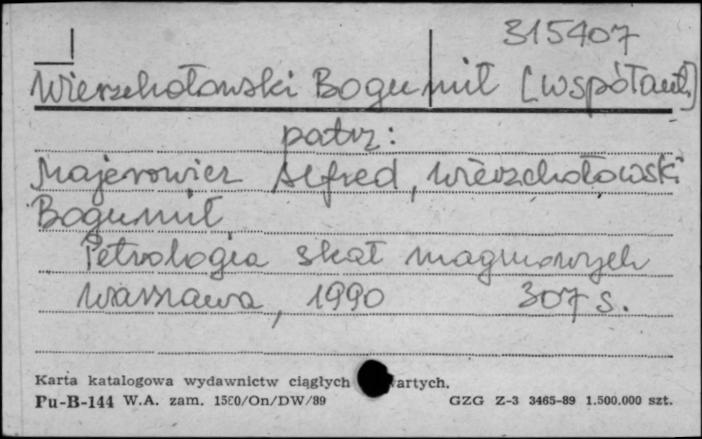 315407
Wierzchołowski Bogumił [współaut.]
patrz:
Majerowicz Alfred, Wierzchołowski
Bogumił
Petrologia skał magmowych
Warszawa, 1990 307 s.
Karta katalogowa wydawnictw ciągłych wartych.
Pu-B-144 W.A. zam. 1580/On/DW/89 GZG Z-3 3465-89 1.500.000 szt.